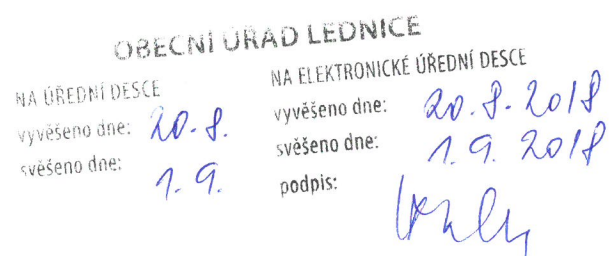 OBECNÍ ÚŘAD LEDNICE
NA ÚŘEDNÍ DESCE
vyvěšeno dne: 20.8.
svěšeno dne: 1.9.
NA ELEKTRONICKÉ ÚŘEDNÍ DESCE
vyvěšeno dne: 20.8.2018
svěšeno dne: 1.9.2018
podpis: